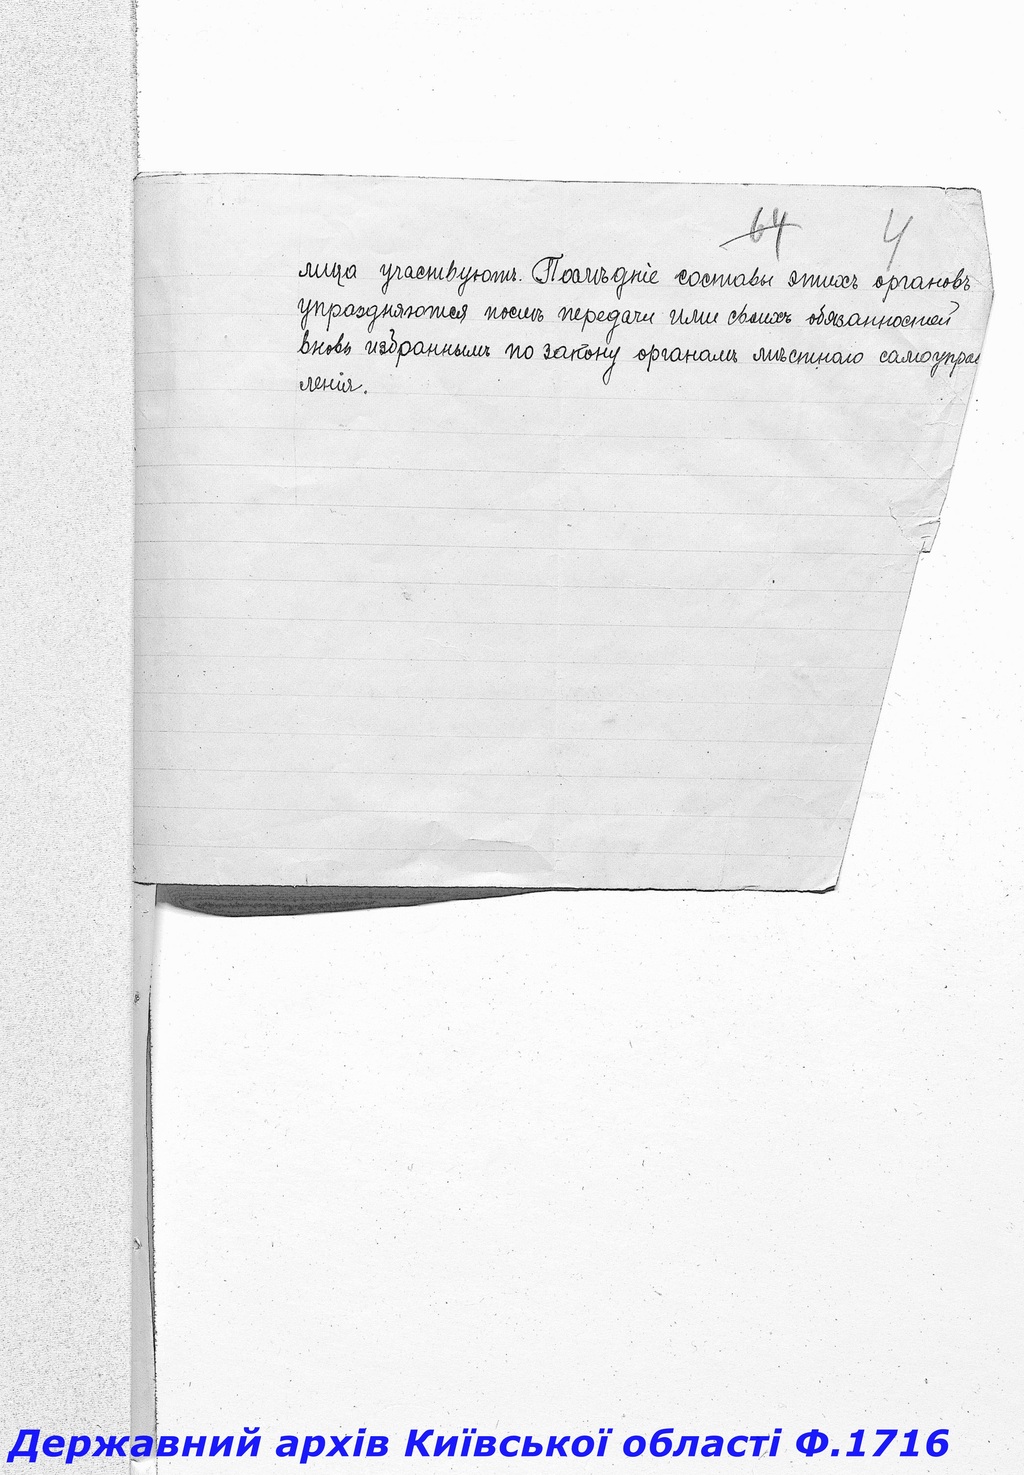 64 4
лица участвуютъ. Послѣдніе составы этихъ органовъ
упраздняются послѣ передачи ими своихъ обязанностей
вновь избраннымъ по закону органамъ мѣстнаго самоуправ
ленія.
Державний архів Київської області Ф.1716